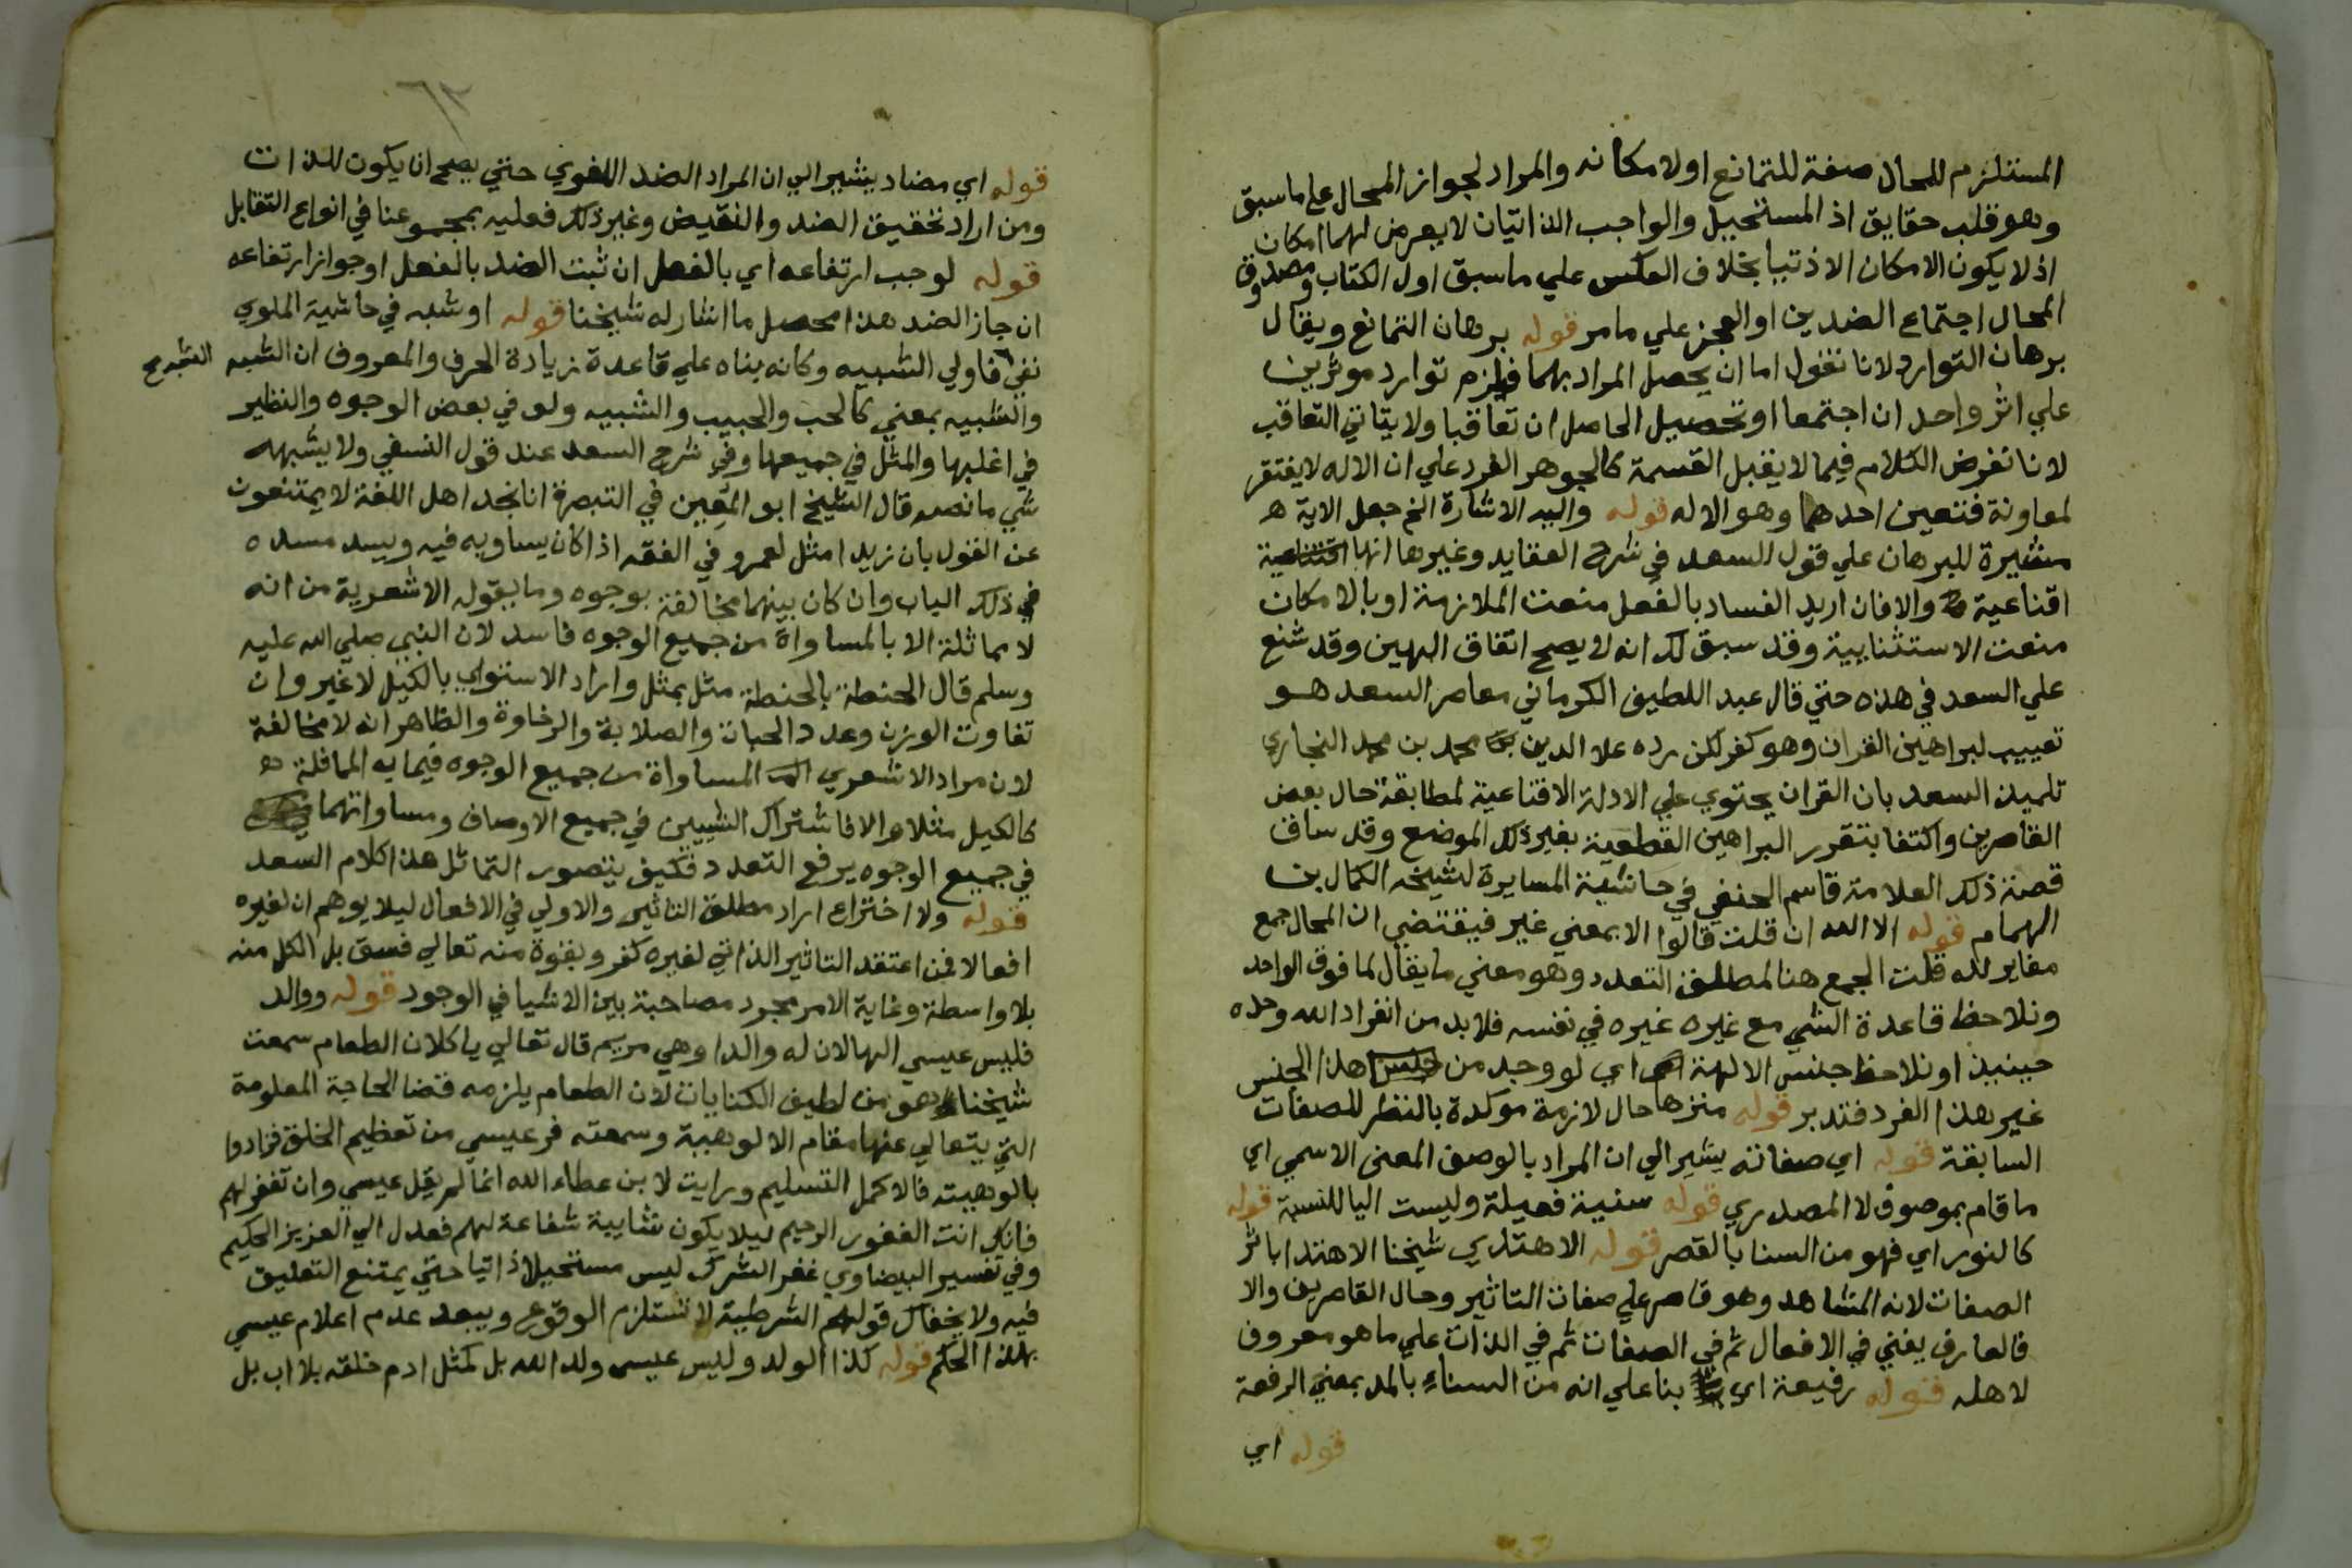 المستلزم للمحال صفة للتمانع اولامكانه والمراد لجواز المحال علي ماسبق
وهو قلب حقايق اذ المستحيل والواجب الذاتيان لا يعرض لهما امكان
اذ لا يكون الامكان الا ذتيا بخلاف العكس علي ماسبق اول الكتاب ومصدوق
المحال اجتماع الضدين او العجز علي مامر قوله برهان التمانع ويقال
برهان التوارد لانا نقول اما ان يحصل المراد بهما فيلزم توارد موثرين
علي اثر واحد ان اجتمعا او تحصيل الحاصل ان تعاقبا ولا يتاتي التعاقب
لانا نفرض الكلام فيما لا يقبل القسمة كالجوهر الفرد علي ان الاله لا يفتقر
لمعاونة فتعين احدهما وهو الاله قوله واليه الاشارة الخ جعل الاية
مشيرة للبرهان علي قول السعد في شرح العقايد وغيرها انها
اقناعية والا فان اريد الفساد بالفعل منعت الملازمة او بالامكان
منعت الاستثنايية وقد سبق لك انه لا يصح اتفاق الهين وقد شنع
علي السعد في هذه حتي قال عبد اللطيف الكرماني معاصر السعد هو
تعييب لبراهين القران وهو كفر لكن رده علا الدين محمد بن محمد البخاري
تلميذ السعد بان القران يحتوي علي الادلة الاقناعية لمطابقة حال بعض
القاصرين واكتفا بتقرر البراهين القطعية بغير ذلك الموضع وقد ساق
قصة ذلك العلامة قاسم الحنفي في حاشية المسايرة لشيخه الكمال بن
الهمام قوله الا الله ان قلت قالوا الا بمعني غير فيقتضي ان المحال جمع
مغاير لله قلت الجمع هنا لمطلق التعدد وهو معني ما يقال لما فوق الواحد
ونلاحظ قاعدة الشي مع غيره غيره في نفسه فلا بد من انفراد الله وحده
حينيذ او نلاحظ جنس الالهة اي لو وجد من هذا الجنس
غير هذا الفرد فتدبر قوله منزها حال لازمة موكدة بالنظر للصفات
السابقة قوله اي صفاته يشير الي ان المراد بالوصف المعني الاسمي اي
ما قام بموصوف لا المصدري قوله سنية فعيلة وليست اليا للنسبة قوله
كالنور اي فهو من السنا بالقصر قوله الاهتدي شيخنا الاهتدا باثر
الصفات لانه المشاهد وهو قاصر علي صفات التاثير وحال القاصرين والا
فالعارف يفني في الافعال ثم في الصفات ثم في الذات علي ما هو معروف
لاهله قوله رفيعة اي بنا علي انه من السناء بالمد بمعني الرفعة
قوله اي
قوله اي مضاد يشير الي ان المراد الضد اللغوي حتي يصح ان يكون للذات
ومن اراد تحقيق الضد والنقيض وغير ذلك فعليه بمجموعنا في انواع التقابل
قوله لوجب ارتفاعه اي بالفعل ان ثبت الضد بالفعل او جواز ارتفاعه
ان جاز الضد هذا محصل ما اشار له شيخنا قوله او شبه في حاشية الملوي
نفي فاولي الشبيه وكانه بناه علي قاعدة زيادة الحرف والمعروف ان الشبه
والشبيه بمعني كالحب والحبيب والشبيه ولو في بعض الوجوه والنظير
في اغلبها والمثل في جميعها وفي شرح السعد عند قول النسفي ولا يشبهه
شي ما نصه قال الشيخ ابو المعين في التبصرة انا نجد اهل اللغة لا يمتنعون
عن القول بان زيدا مثل لعمرو في الفقه اذا كان يساويه فيه ويسد مسده
في ذلك الباب وان كان بينهما مخالفة بوجوه وما يقوله الاشعرية من انه
لا مماثلة الا بالمساواة من جميع الوجوه فاسد لان النبي صلي الله عليه
وسلم قال الحنطة بالحنطة مثل بمثل واراد الاستواي بالكيل لا غير وان
تفاوت الوزن وعدد الحبات والصلابة والرخاوة والظاهر انه لا مخالفة
لان مراد الاشعري المساواة من جميع الوجوه فيما به المماثلة
كالكيل مثلا والا فاشتراك الشييين في جميع الاوصاف ومساواتهما
في جميع الوجوه يرفع التعدد فكيف يتصور التماثل هذا كلام السعد
قوله ولا اختراع اراد مطلق التاثير والاولي في الافعال ليلا يوهم ان لغيره
افعالا فمن اعتقد التاثير الذاتي لغيره كفر وبقوة منه تعالي فسق بل الكل منه
بلا واسطة وغاية الامر مجرد مصاحبة بين الاشيا في الوجود قوله ووالد
فليس عيسي الها لان له والدا وهي مريم قال تعالي ياكلان الطعام سمعت
شيخنا وهو من لطيف الكنايات لان الطعام يلزمه قضا الحاجة المعلومة
التي يتعالي عنها مقام الالوهية وسمعته فر عيسي من تعظيم الخلق فزادوا
بالوهيته فالاكمل التسليم ورايت لابن عطاء الله انما لم يقل عيسي وان تغفر لهم
فانك انت الغفور الرحيم ليلا يكون شايية شفاعة لهم فعدل الي العزيز الحكيم
وفي تفسير البيضاوي غفر الشرك ليس مستحيلا ذاتيا حتي يمتنع التعليق
فيه ولا يخفاك قولهم الشرطية لا تستلزم الوقوع ويبعد عدم اعلام عيسي
بهذا الحكم قوله كذا الولد وليس عيسي ولد الله بل كمثل ادم خلقه بلا اب بل